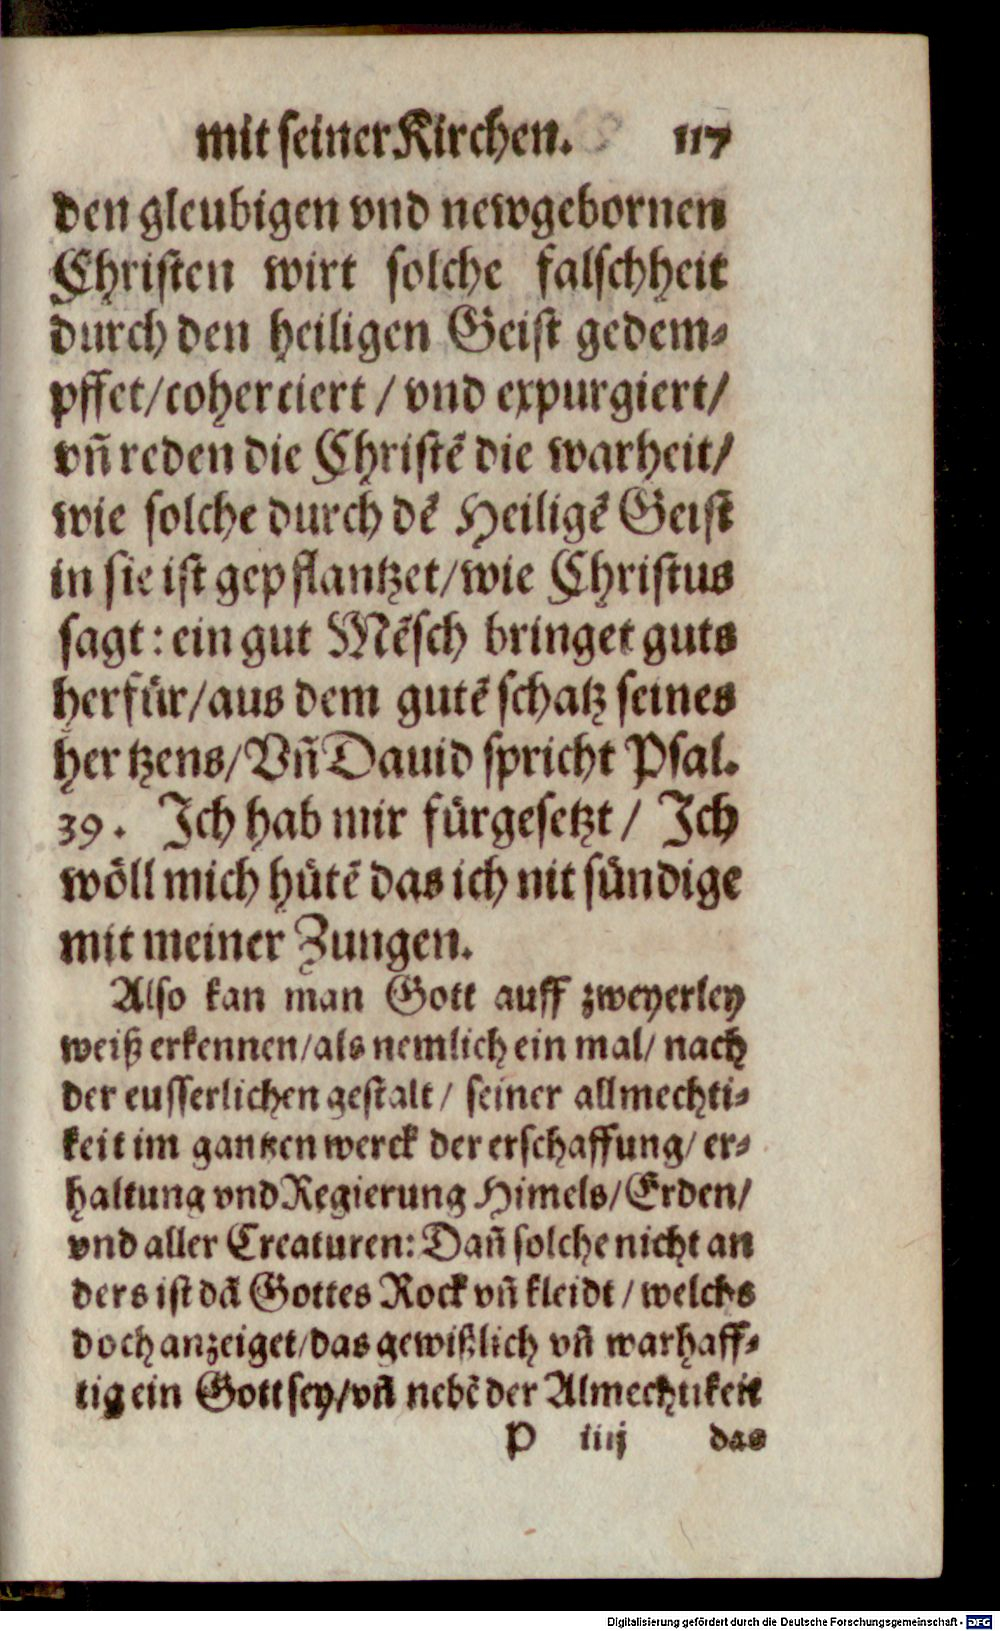 mit seiner Kirchen. 117
den gleubigen vnd newgebornen
Christen wirt solche falschheit
durch den heiligen Geist gedem⸗
pffet/coherciert / vnd expurgiert/
vñ reden die Christẽ die warheit/
wie solche durch dẽ Heiligẽ Geist
in sie ist gepflantzet/wie Christus
sagt: ein gut Mẽsch bringet guts
herfür/aus dem gutẽ schatz seines
hertzens/Vñ Dauid spricht Psal.
39. Ich hab mir fürgesetzt / Ich
wöll mich hütẽ das ich nit sündige
mit meiner Zungen.
Also kan man Gott auff zweyerley
weiß erkennen/als nemlich ein mal/ nach
der eusserlichen gestalt/ seiner allmechti⸗
keit im gantzen werck der erschaffung/ er⸗
haltung vnd Regierung Himels/Erden/
vnd aller Creaturen: Dañ solche nicht an
ders ist dã Gottes Rock vñ kleidt / welchs
doch anzeiget/das gewißlich vñ warhaff⸗
tig ein Gott sey/vñ nebẽ der Almechtikeit
P iiij das
Digitalisierung gefördert durch die Deutsche Forschungsgemeinschaft - DFG